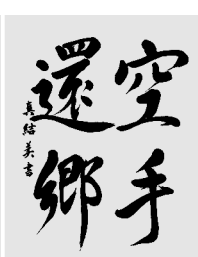 空手
還郷
真結美書